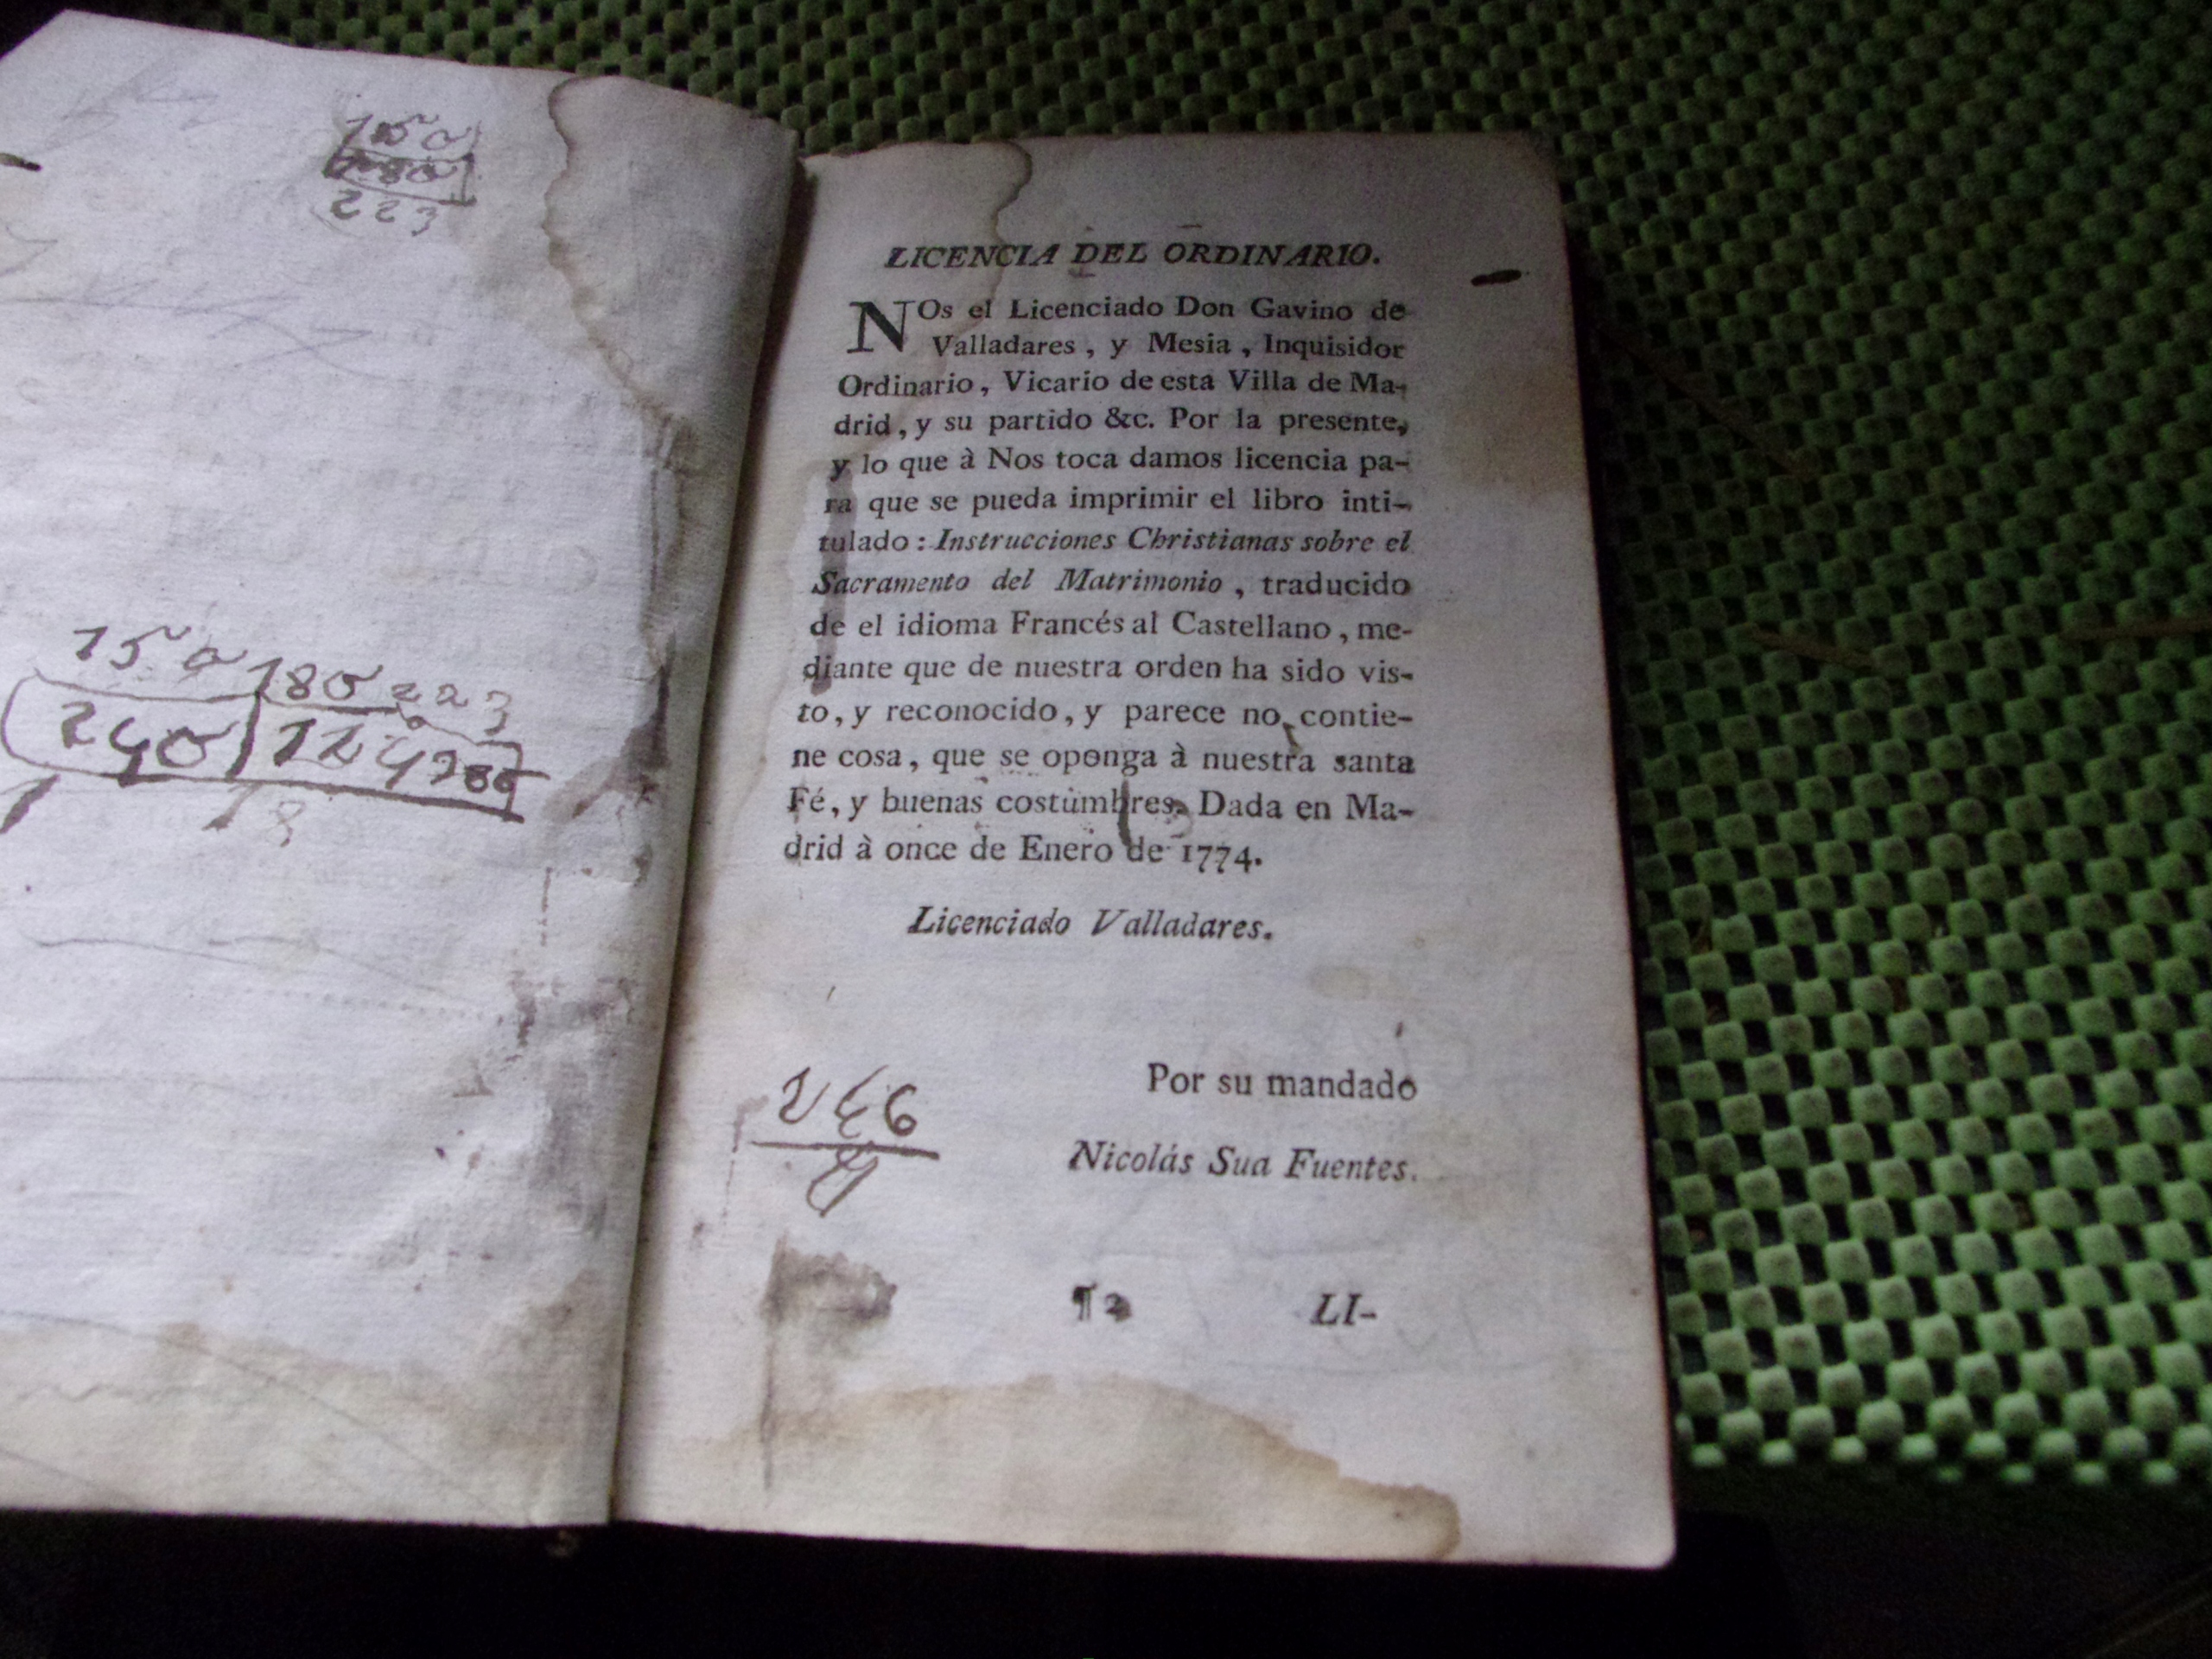 150
180
223
150 180 223
240
LICENCIA DEL ORDINARIO.
NOs el Licenciado Don Gavino de
Valladares, y Mesia, Inquisidor
Ordinario, Vicario de esta Villa de Ma-
drid, y su partido &c. Por la presente,
y lo que à Nos toca damos licencia pa-
ra que se pueda imprimir el libro inti-
tulado: Instrucciones Christianas sobre el
Sacramento del Matrimonio, traducido
de el idioma Francés al Castellano, me-
diante que de nuestra orden ha sido vis-
to, y reconocido, y parece no contie-
ne cosa, que se oponga à nuestra santa
Fé, y buenas costumbres. Dada en Ma-
drid à once de Enero de 1774.
Licenciado Valladares.
Por su mandado
Nicolás Sua Fuentes.
¶ 2 LI-